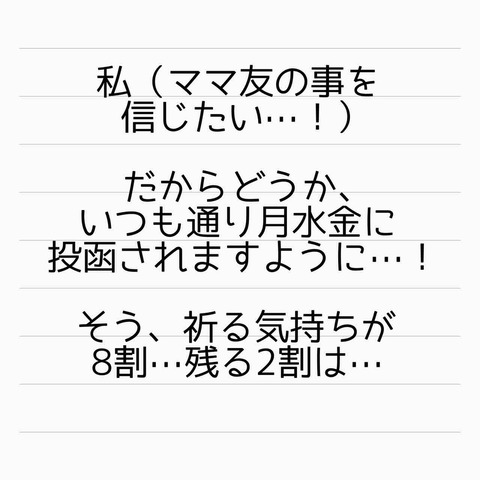 私（ママ友の事を
信じたい…！）
だからどうか、
いつも通り月水金に
投函されますように…！
そう、祈る気持ちが
8割…残る2割は…